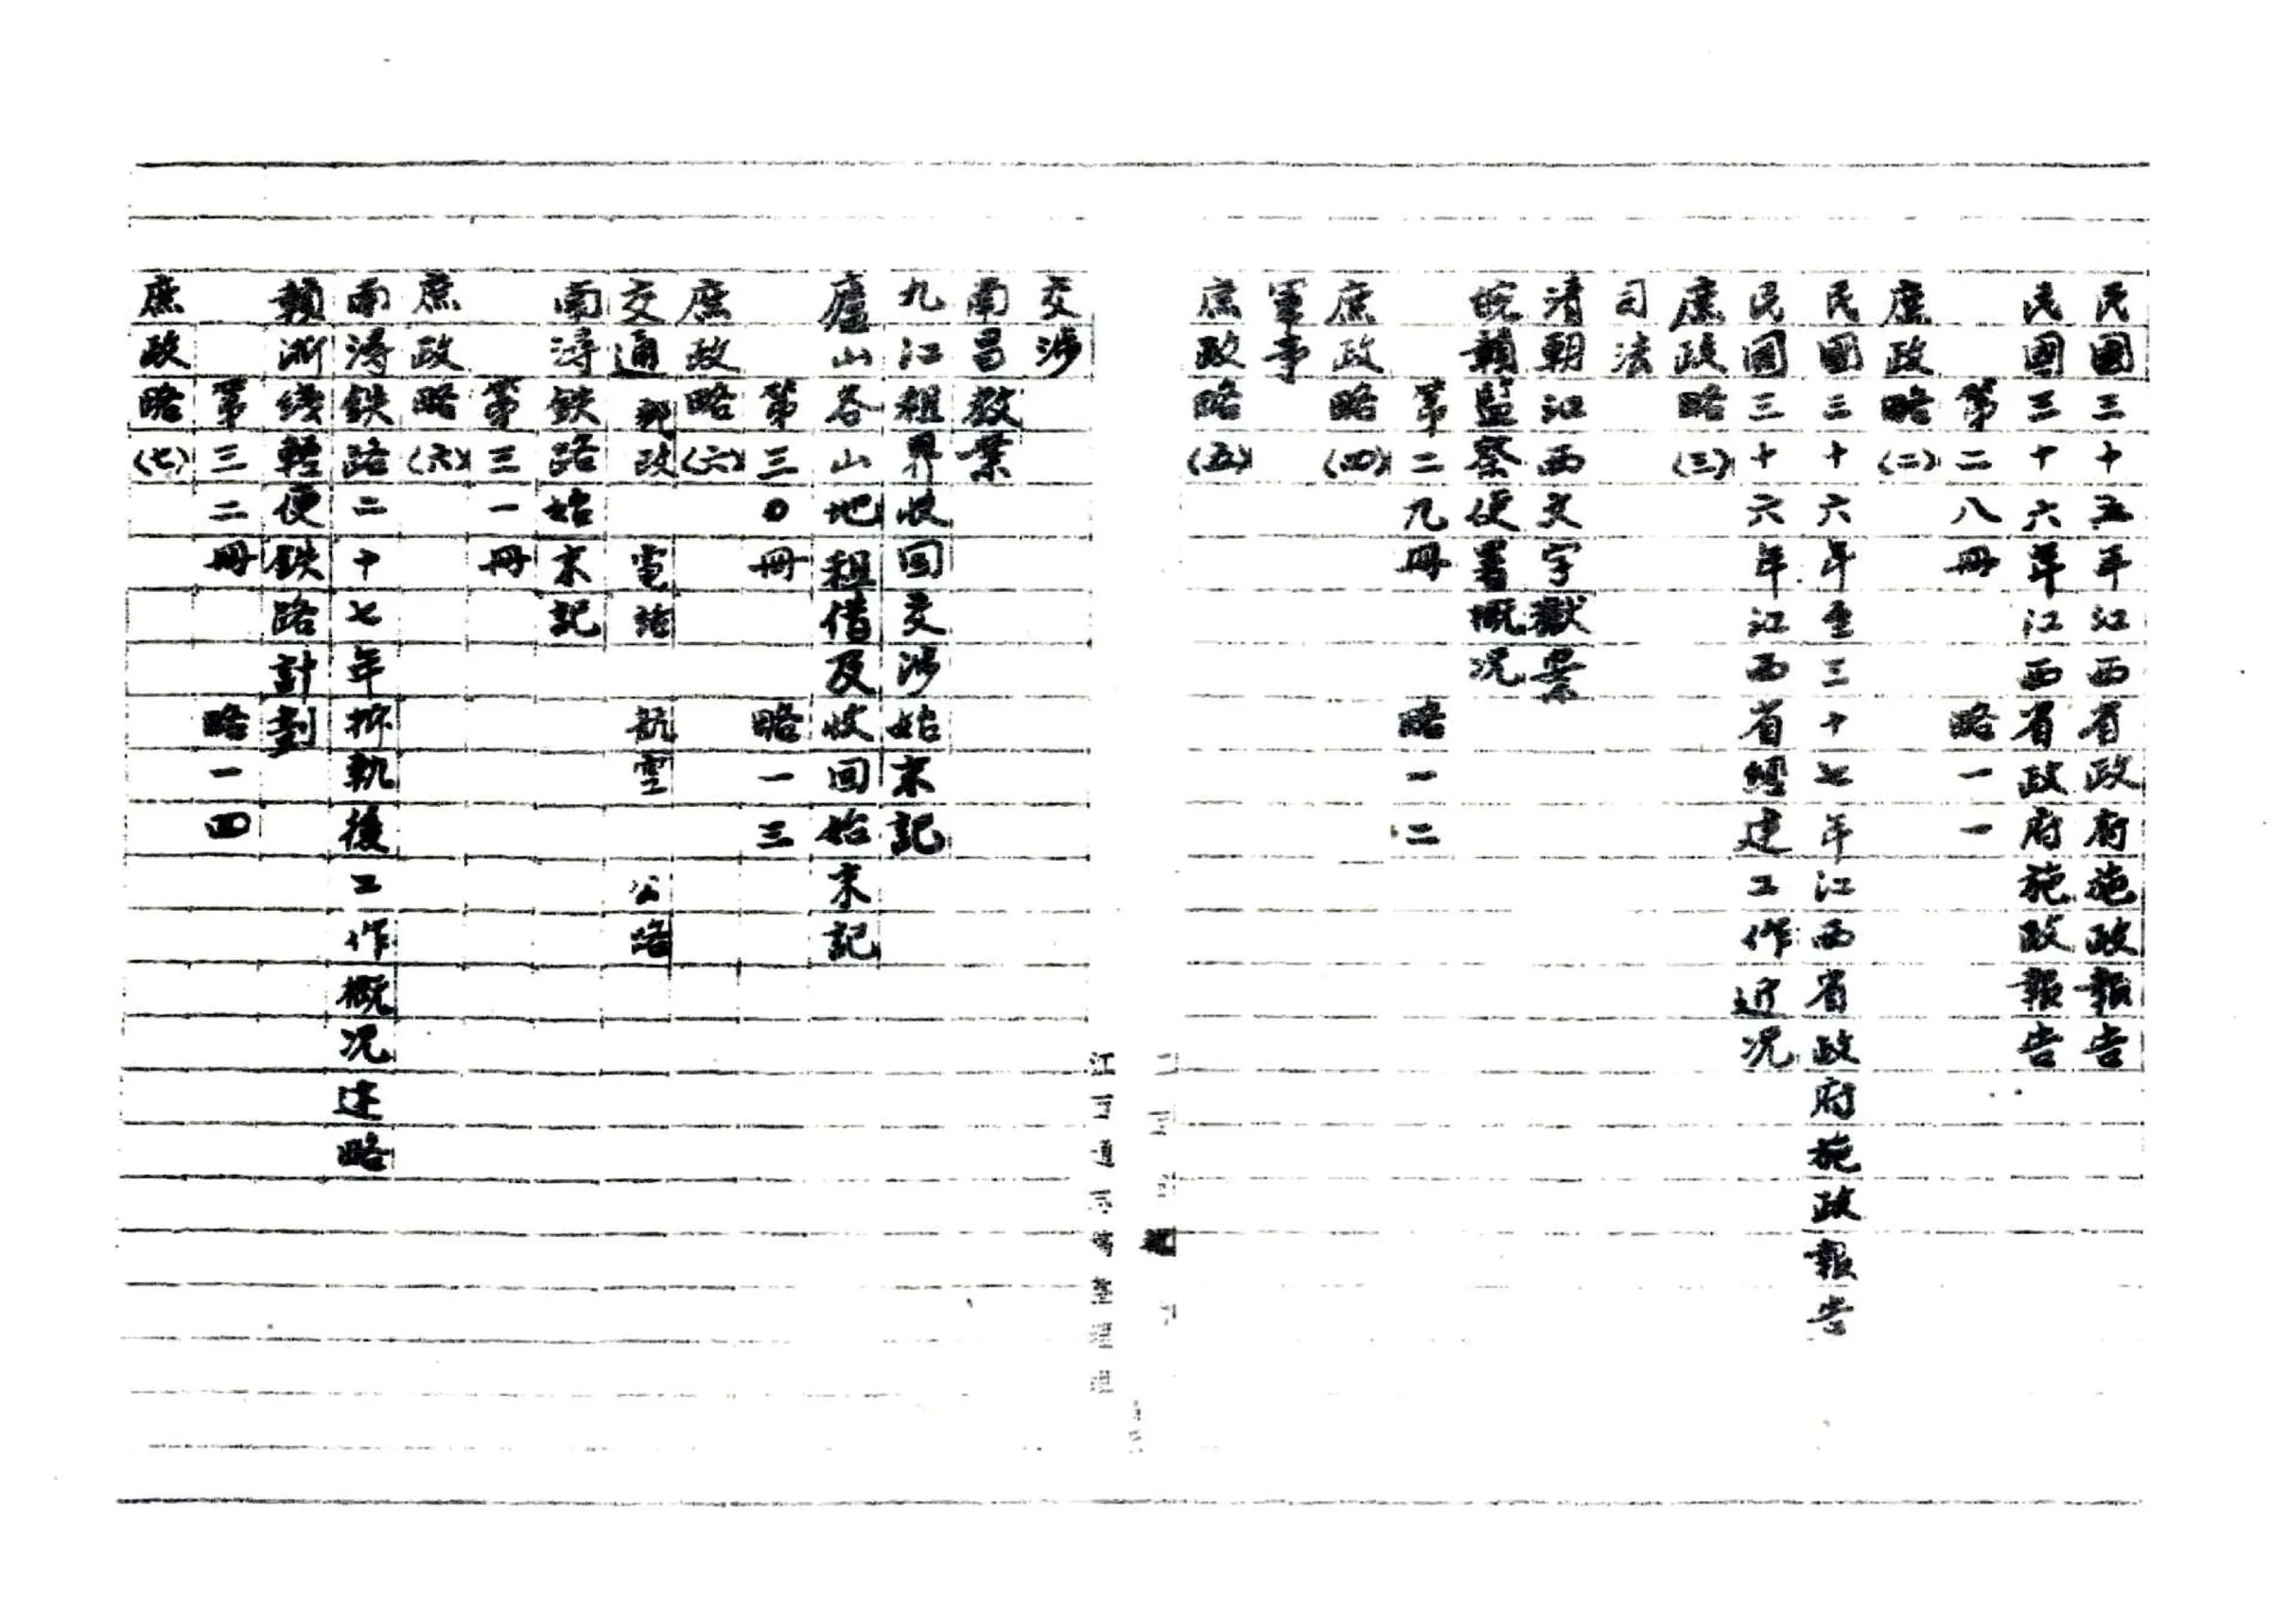 民國三十五年江西省政府施政報告
民國三十六年江西省政府施政報告
第二八冊 略一一
庶政略(二)
民國三十六年至三十七年江西省政府施政報告
民國三十六年江西省經建工作近況
庶政略(三)
司法
清朝江西文字獄案
皖贛監察使署概況
第二九冊 略一二
庶政略(四)
軍事
庶政略(五)
交涉
南昌教案
九江租界收回交涉始末記
廬山各山地租借及收回始末記
第三0冊 略一三
庶政略(六)
交通 郵政 電話 航空 公路
南潯鉄路始末記
第三一冊
庶政略(六)
南潯鉄路二十七年拆軌後工作概況述略
贛浙綫輕便鉄路計劃
第三二冊 略一四
庶政略(七)